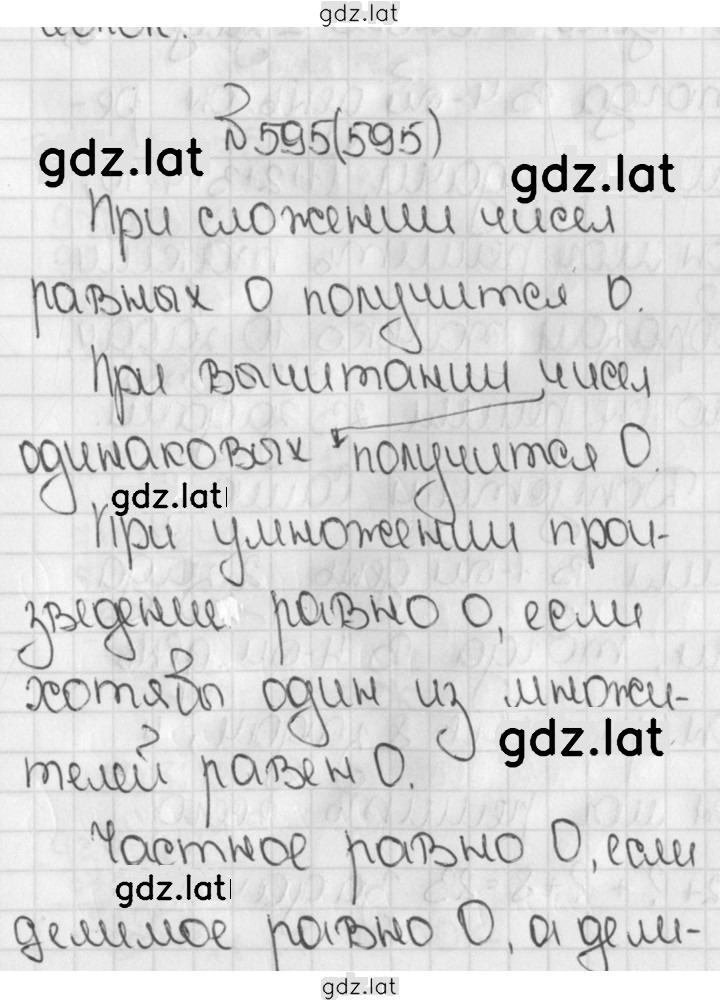 gdz.lat
№595(595)
gdz.lat
gdz.lat
При сложении чисел
равных 0 получится 0.
При вычитании чисел
одинаковых получится 0.
gdz.lat
При умножении прои-
зведение равно 0, если
хотябы один из множи-
gdz.lat
телей равен 0.
Частное равно 0, если
gdz.lat
делимое равно 0, а дели-
gdz.lat